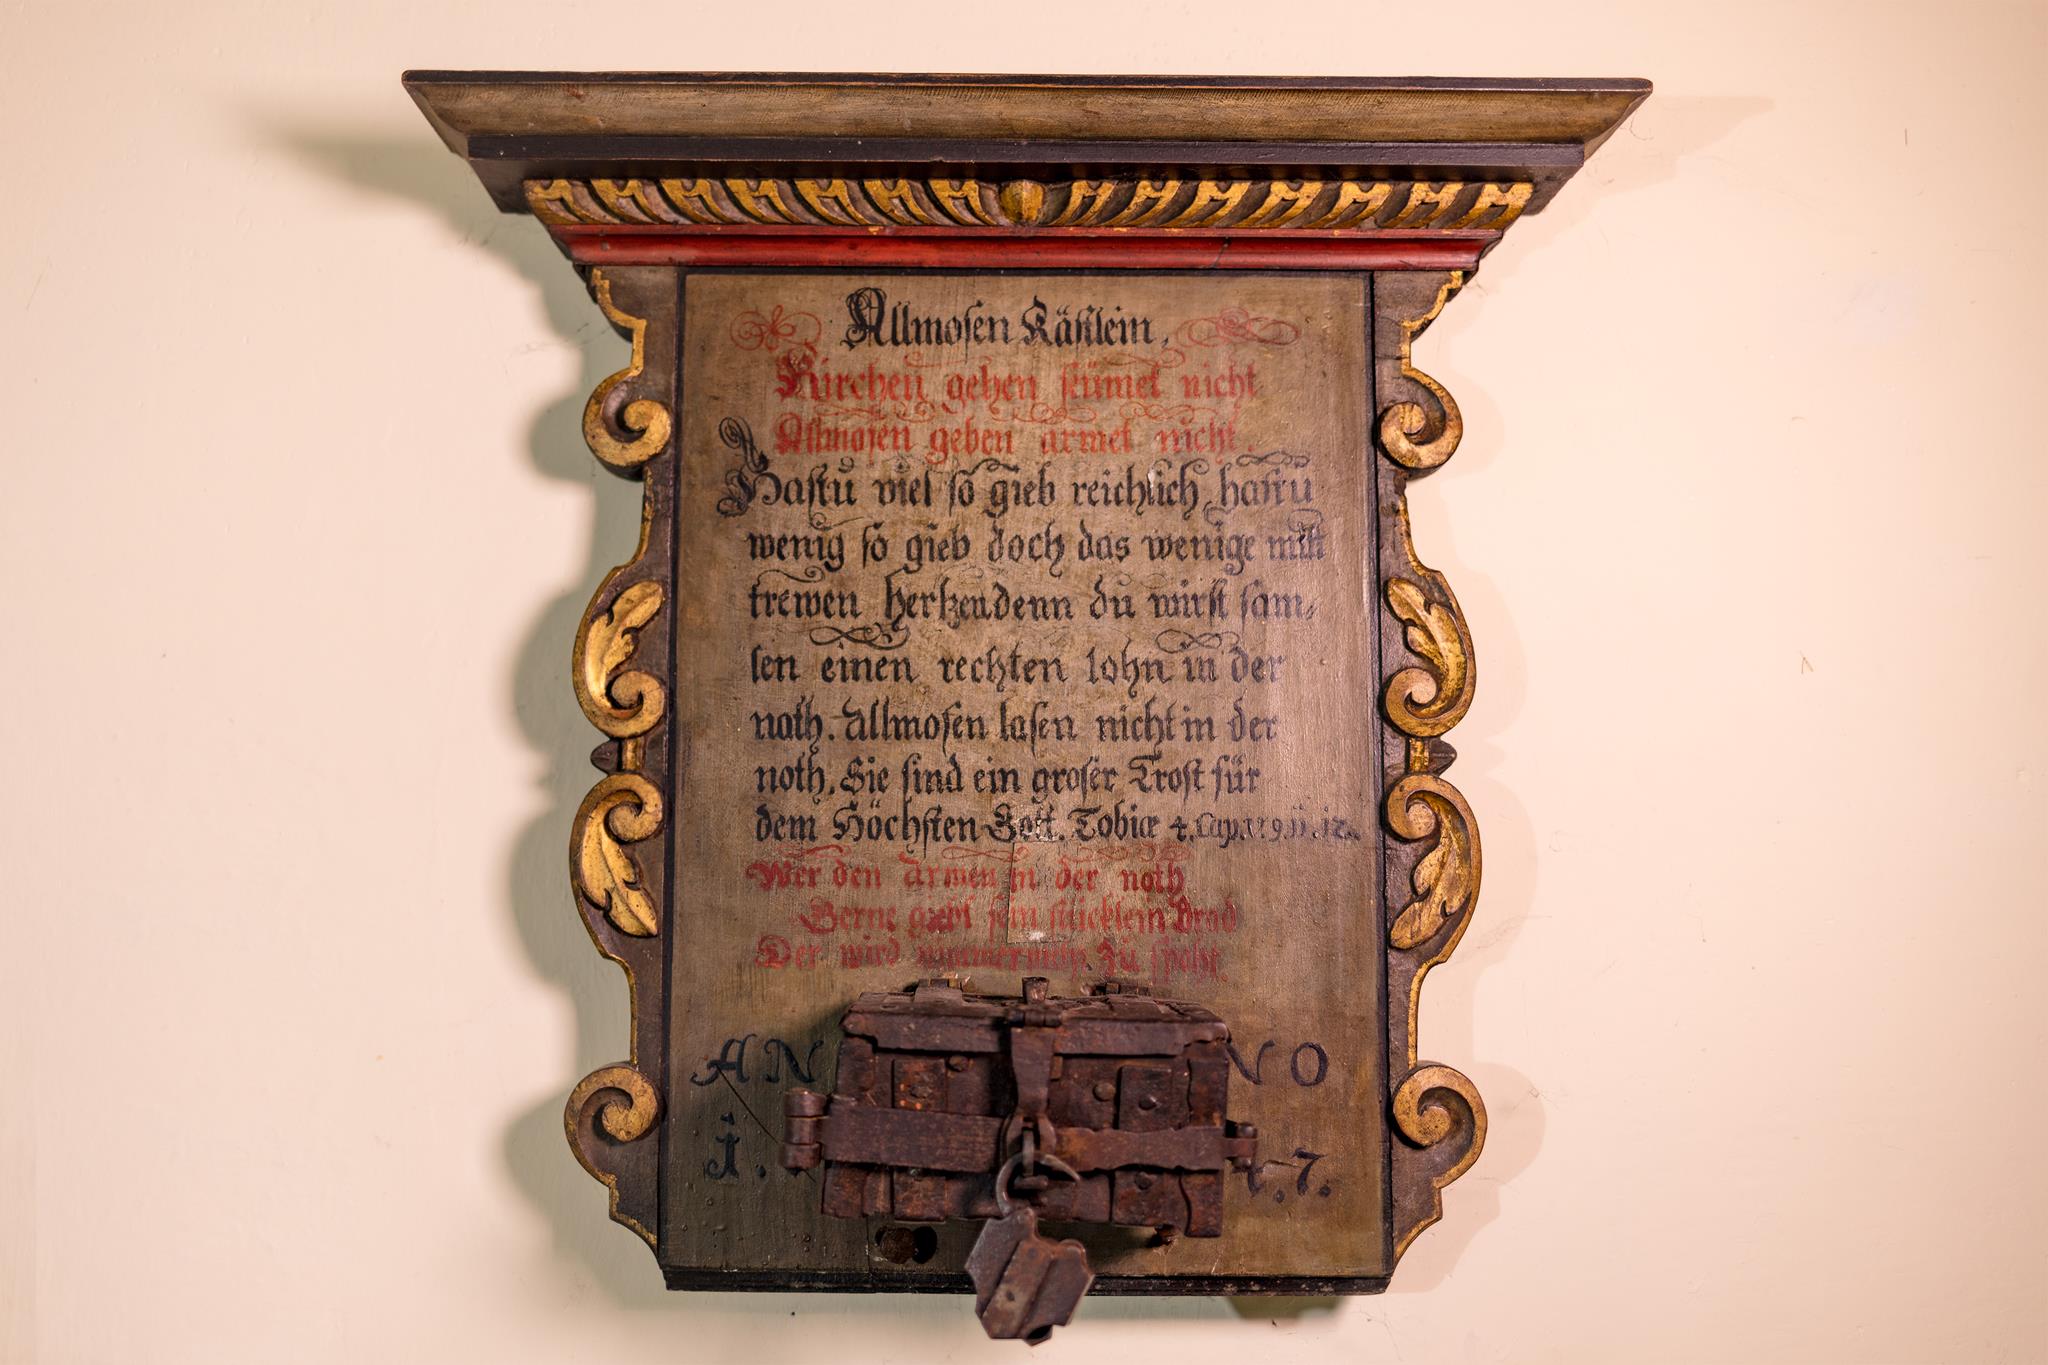 Allmosen Kästlein,
Kirchen gehen seümet nicht
Allmosen geben armet nicht.
Hastu viel so gieb reichlich hastu
wenig so gieb doch das wenige mitt
trewen hertzen denn du wirst sam-
len einen rechten lohn in der
noth. Allmosen lasen nicht in der
noth. Sie sind ein groser Trost für
dem Höchsten Gott. Tobiæ 4. Cap.
Wer den armen in der noth
Gerne giebt sein stücklein Brod
Der wird nimmermehr zu spoht.
AN NO
1. 7.